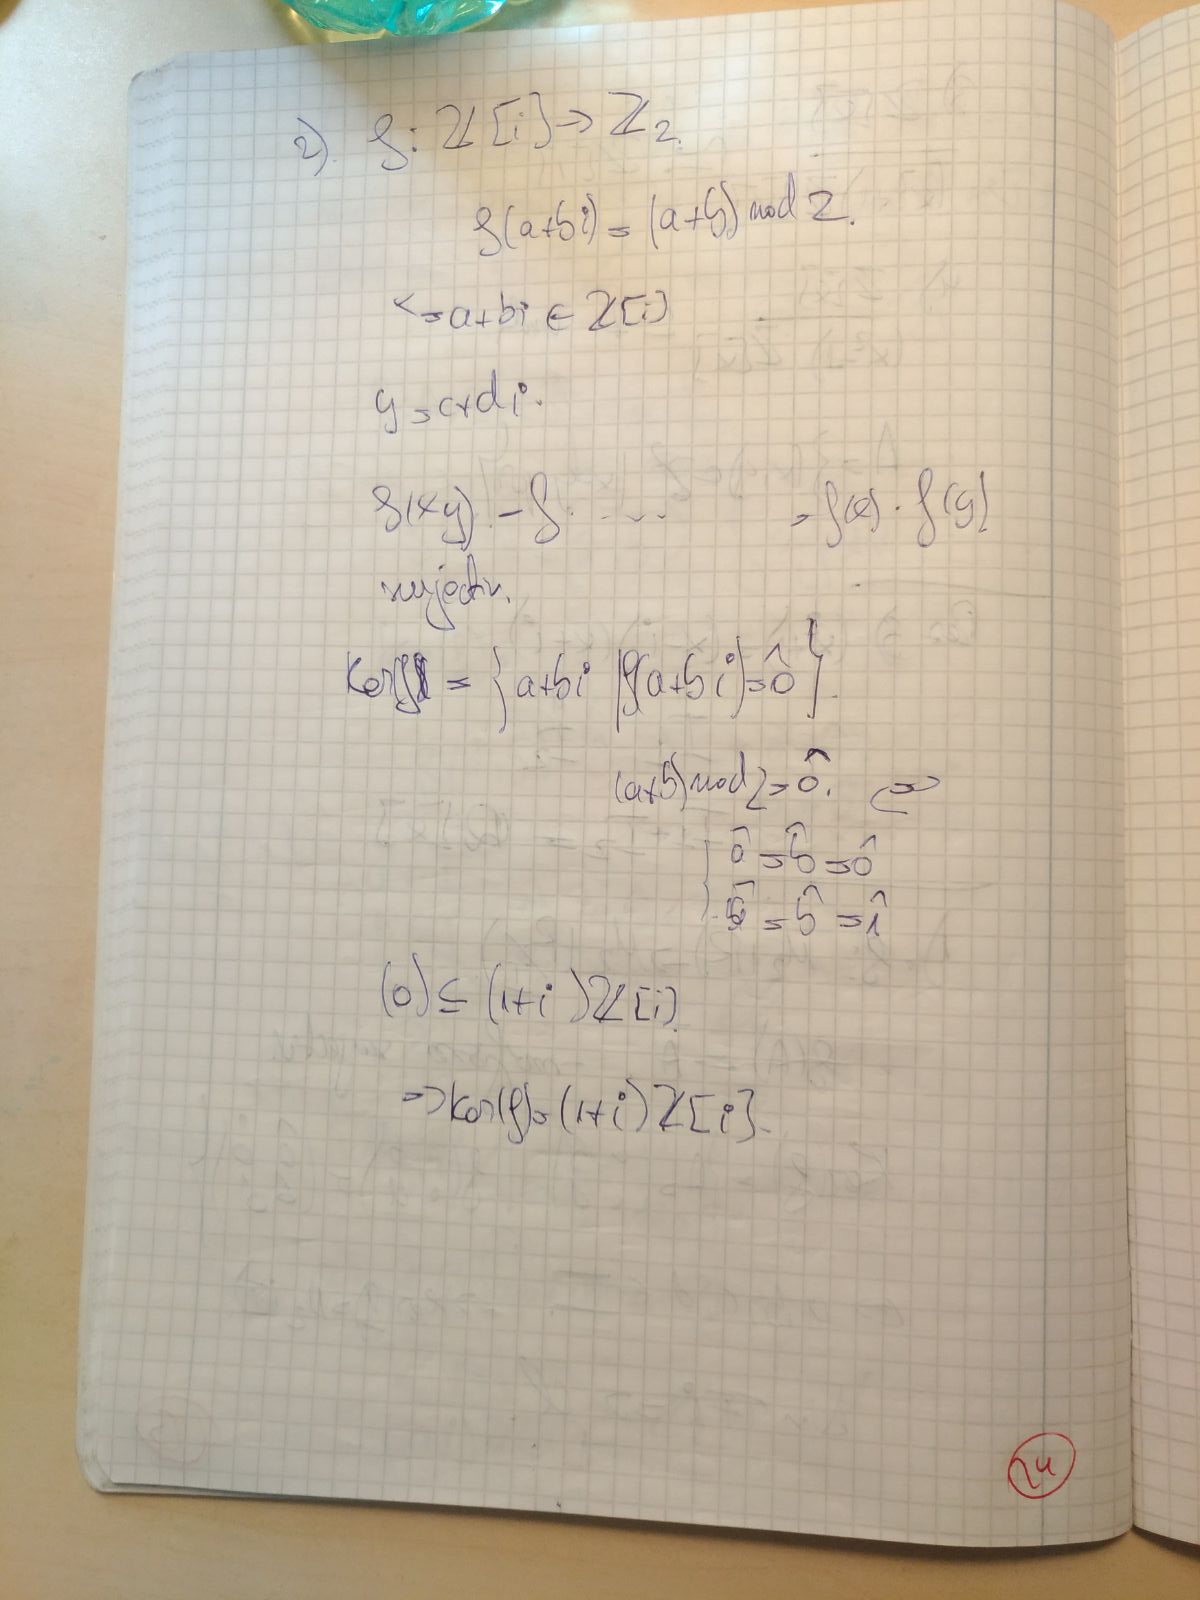 2). f: ℤ[i] → ℤ₂.
f(a+bi) = (a+b) mod 2.
x = a+bi ∈ ℤ[i]
y = c+di.
f(xy) = f ..... = f(x) · f(y)
surjectiv.
Ker f = {a+bi | f(a+bi) = 0̂}.
(a+b) mod 2 = 0̂. ⇔
â = b̂ = 0̂
â = b̂ = 1̂
(0) ⊆ (1+i)ℤ[i]
⇒ Ker(f) = (1+i)ℤ[i].
24